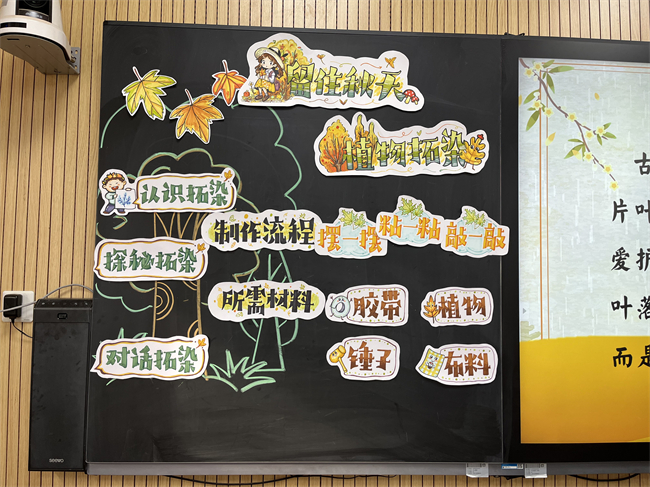 留住秋天
植物拓染
认识拓染
制作流程
摆一摆
粘一粘
敲一敲
探秘拓染
所需材料
胶带
植物
对话拓染
锤子
布料
古
片叶
爱护
叶落
而是
seewo